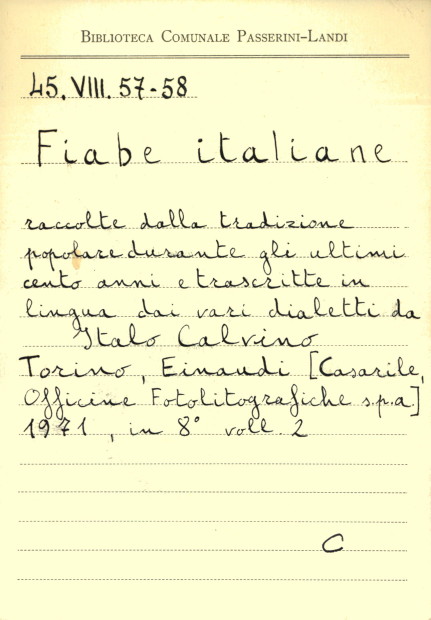 BIBLIOTECA COMUNALE PASSERINI-LANDI
45. VIII. 57-58
Fiabe italiane
raccolte dalla tradizione
popolare durante gli ultimi
cento anni e trascritte in
lingua dai vari dialetti da
Italo Calvino
Torino, Einaudi [Casarile,
Officine Fotolitografiche s.p.a.]
1971, in 8° voll. 2
C